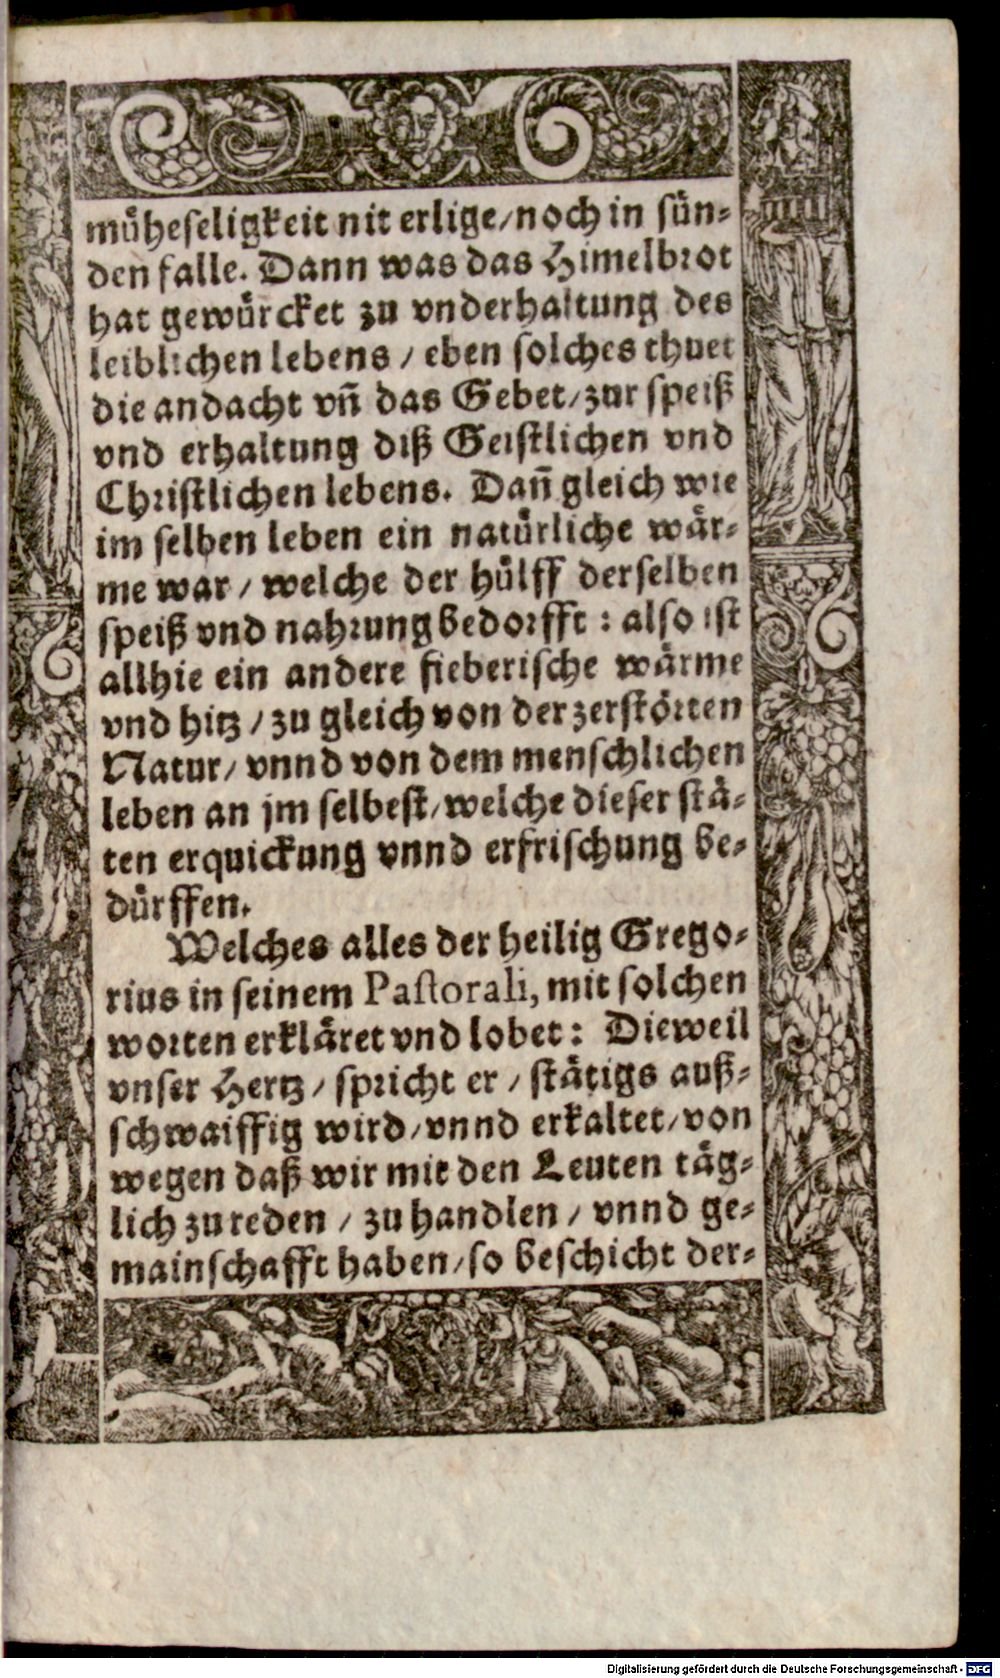 müheseligkeit nit erlige/noch in sün-
den falle. Dann was das Himelbrot
hat gewürcket zu vnderhaltung des
leiblichen lebens / eben solches thuet
die andacht vñ das Gebet/zur speiß
vnd erhaltung diß Geistlichen vnd
Christlichen lebens. Dañ gleich wie
im selben leben ein natürliche wär-
me war / welche der hülff derselben
speiß vnd nahrung bedorfft : also ist
allhie ein andere fieberische wärme
vnd hitz / zu gleich von der zerstörten
Natur/ vnnd von dem menschlichen
leben an jm selbest/welche dieser stä-
ten erquickung vnnd erfrischung be-
dürffen.
Welches alles der heilig Grego-
rius in seinem Pastorali, mit solchen
worten erkläret vnd lobet : Dieweil
vnser Hertz / spricht er / stätigs auß-
schwaiffig wird/vnnd erkaltet/von
wegen daß wir mit den Leuten täg-
lich zu reden / zu handlen / vnnd ge-
mainschafft haben/so beschicht der-
Digitalisierung gefördert durch die Deutsche Forschungsgemeinschaft - DFG